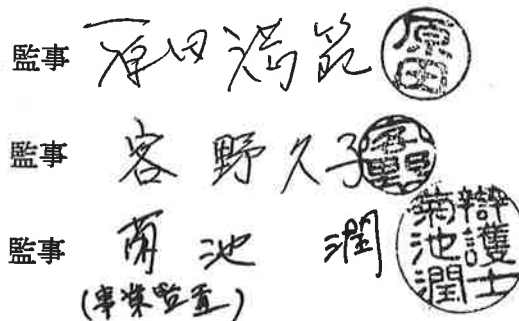 監事 原田満範 原田
監事 客野久子 客野
監事 菊池 潤 辯護士菊池潤
(事業監査)